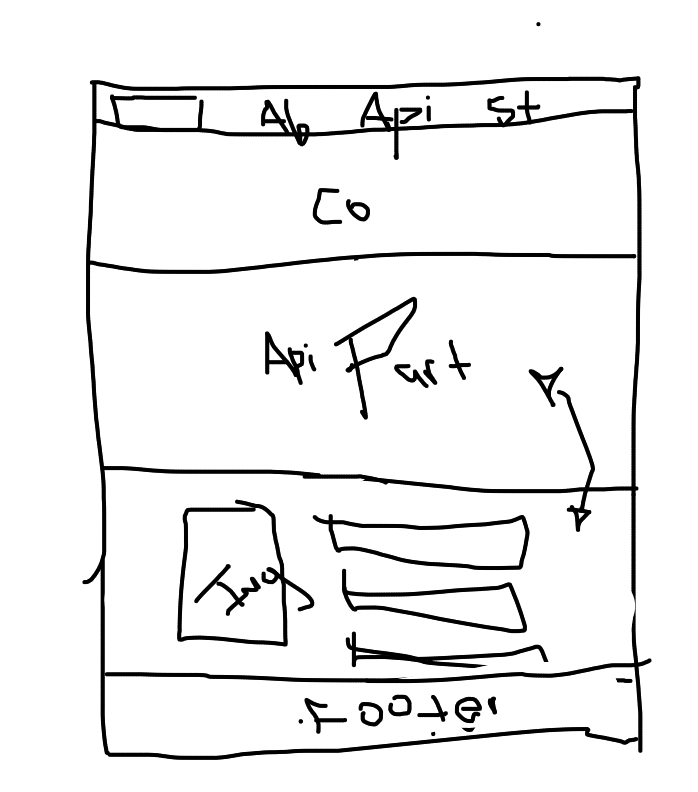 Ab Api St
Co
Api Part
Img
Footer